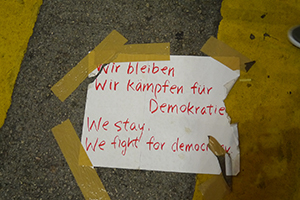 Wir bleiben
Wir kämpfen für
Demokratie
We stay.
We fight for democracy.